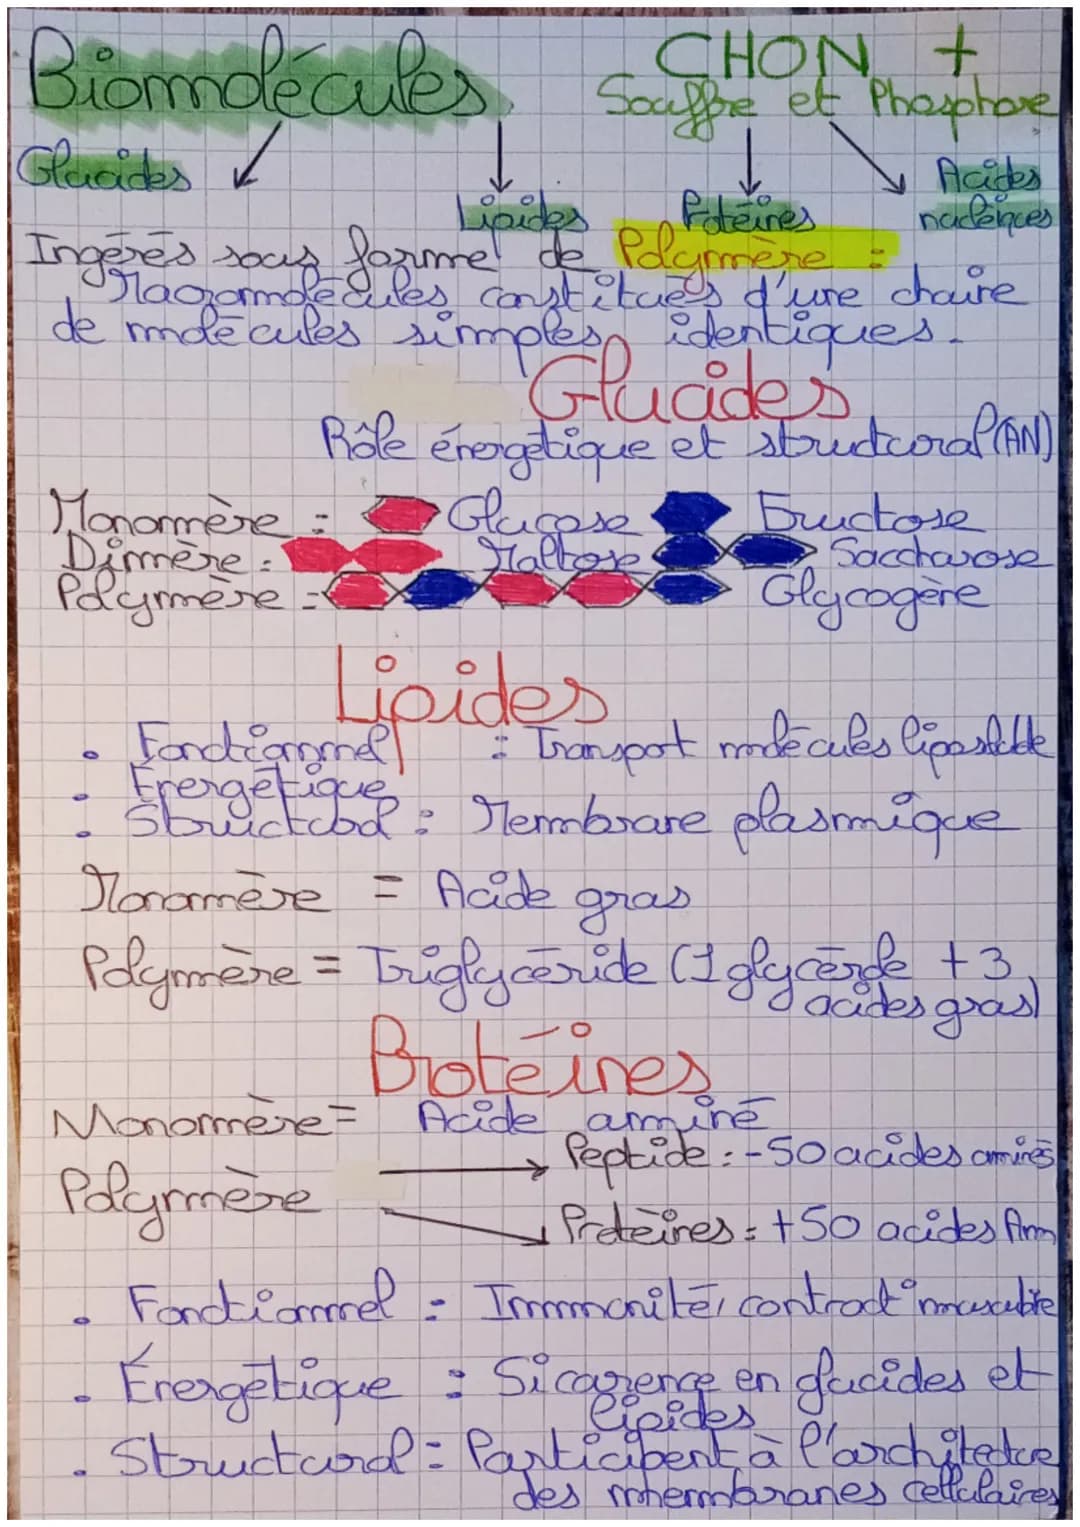 Biomolécules
CHON +
Souffre et Phosphore
Glucides
Lipides
Protéines
Acides
nucléiques
Ingérés sous forme de Polymère :
Macromolécules constitués d'une chaine
de molécules simples identiques.
Glucides
Rôle énergétique et structural (AN)
Monomère : Glucose Fructose
Dimère : Maltose Saccharose
Polymère : Glycogène
Lipides
• Fonctionnel : Transport molécules liposoluble
• Énergétique
• Structural : Membrane plasmique
Monomère = Acide gras
Polymère = Triglycéride (1 glycérole + 3
acides gras)
Protéines
Monomère = Acide aminé
Polymère
Peptide : -50 acides aminés
Protéines : +50 acides Am
• Fonctionnel : Immunité, contract° musculaire
• Énergétique : Si carence en glucides et
lipides
• Structural : Participent à l'architecture
des mhembranes cellulaires